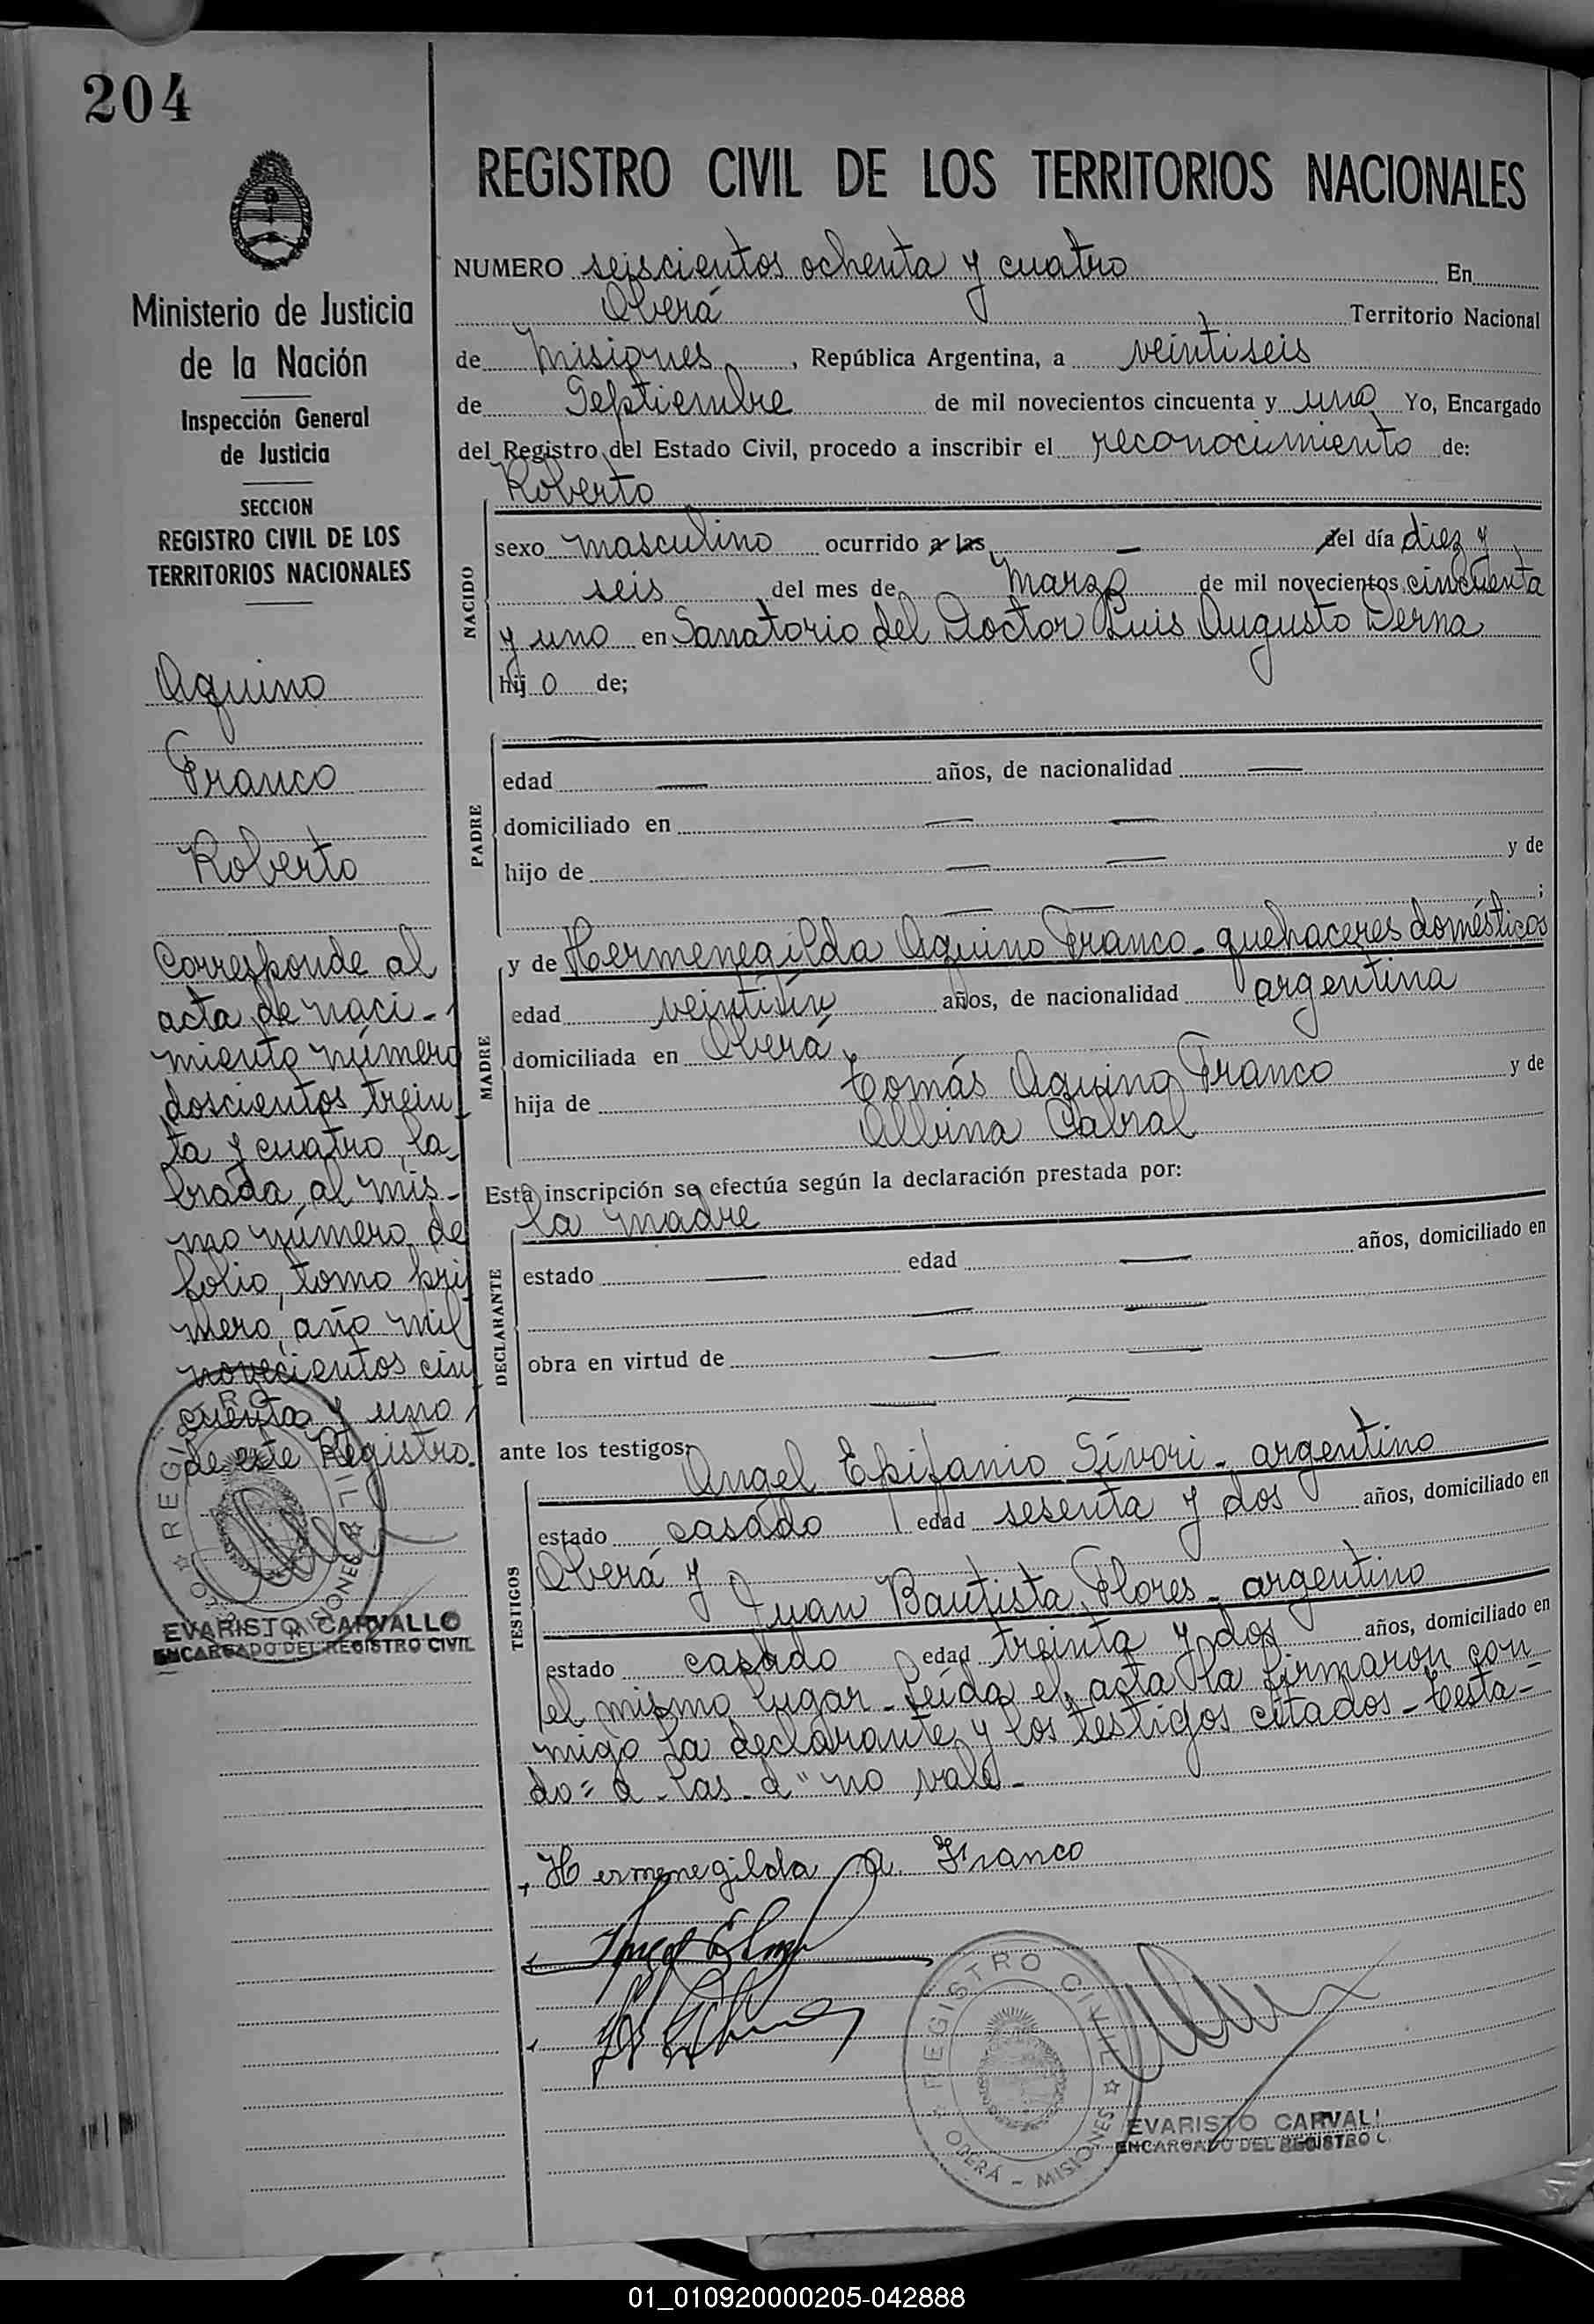 204
REGISTRO CIVIL DE LOS TERRITORIOS NACIONALES
Ministerio de Justicia
de la Nación
Inspección General
de Justicia
SECCION
REGISTRO CIVIL DE LOS
TERRITORIOS NACIONALES
Aquino
Franco
Roberto
Corresponde al
acta de naci-
miento número
doscientos trein
ta y cuatro, la
brada al mis-
mo número de
folio, tomo pri
mero, año mil
novecientos cin
cuenta y uno
de este Registro.
REGISTRO CIVIL
EVARISTO CARVALLO
ENCARGADO DEL REGISTRO CIVIL
NUMERO seiscientos ochenta y cuatro En
Oberá Territorio Nacional
de Misiones, República Argentina, a veintiseis
de Septiembre de mil novecientos cincuenta y uno Yo, Encargado
del Registro del Estado Civil, procedo a inscribir el reconocimiento de:
Roberto
NACIDO
sexo masculino ocurrido a las — del día diez y
seis del mes de Marzo de mil novecientos cincuenta
y uno en Sanatorio del Doctor Luis Augusto Derna
hijo de;
PADRE
—
edad — años, de nacionalidad —
domiciliado en — —
hijo de — — y de
— — ;
MADRE
y de Hermenegilda Aquino Franco - quehaceres domésticos
edad veintiún años, de nacionalidad argentina
domiciliada en Oberá
hija de Tomás Aquino Franco y de
Albina Cabral
Esta inscripción se efectúa según la declaración prestada por:
la madre
DECLARANTE
estado — edad — años, domiciliado en
— —
obra en virtud de — —
— —
ante los testigos:
Angel Epifanio Sívori - argentino
TESTIGOS
estado casado edad sesenta y dos años, domiciliado en
Oberá y
Juan Bautista Flores - argentino
estado casado edad treinta y dos años, domiciliado en
el mismo lugar - Leída el acta la firmaron con-
migo la declarante y los testigos citados - Testa-
do = a - las - d" no vale -
Hermenegilda A. Franco
REGISTRO CIVIL
OBERÁ - MISIONES
EVARISTO CARVAL
ENCARGADO DEL REGISTRO C
01_010920000205-042888